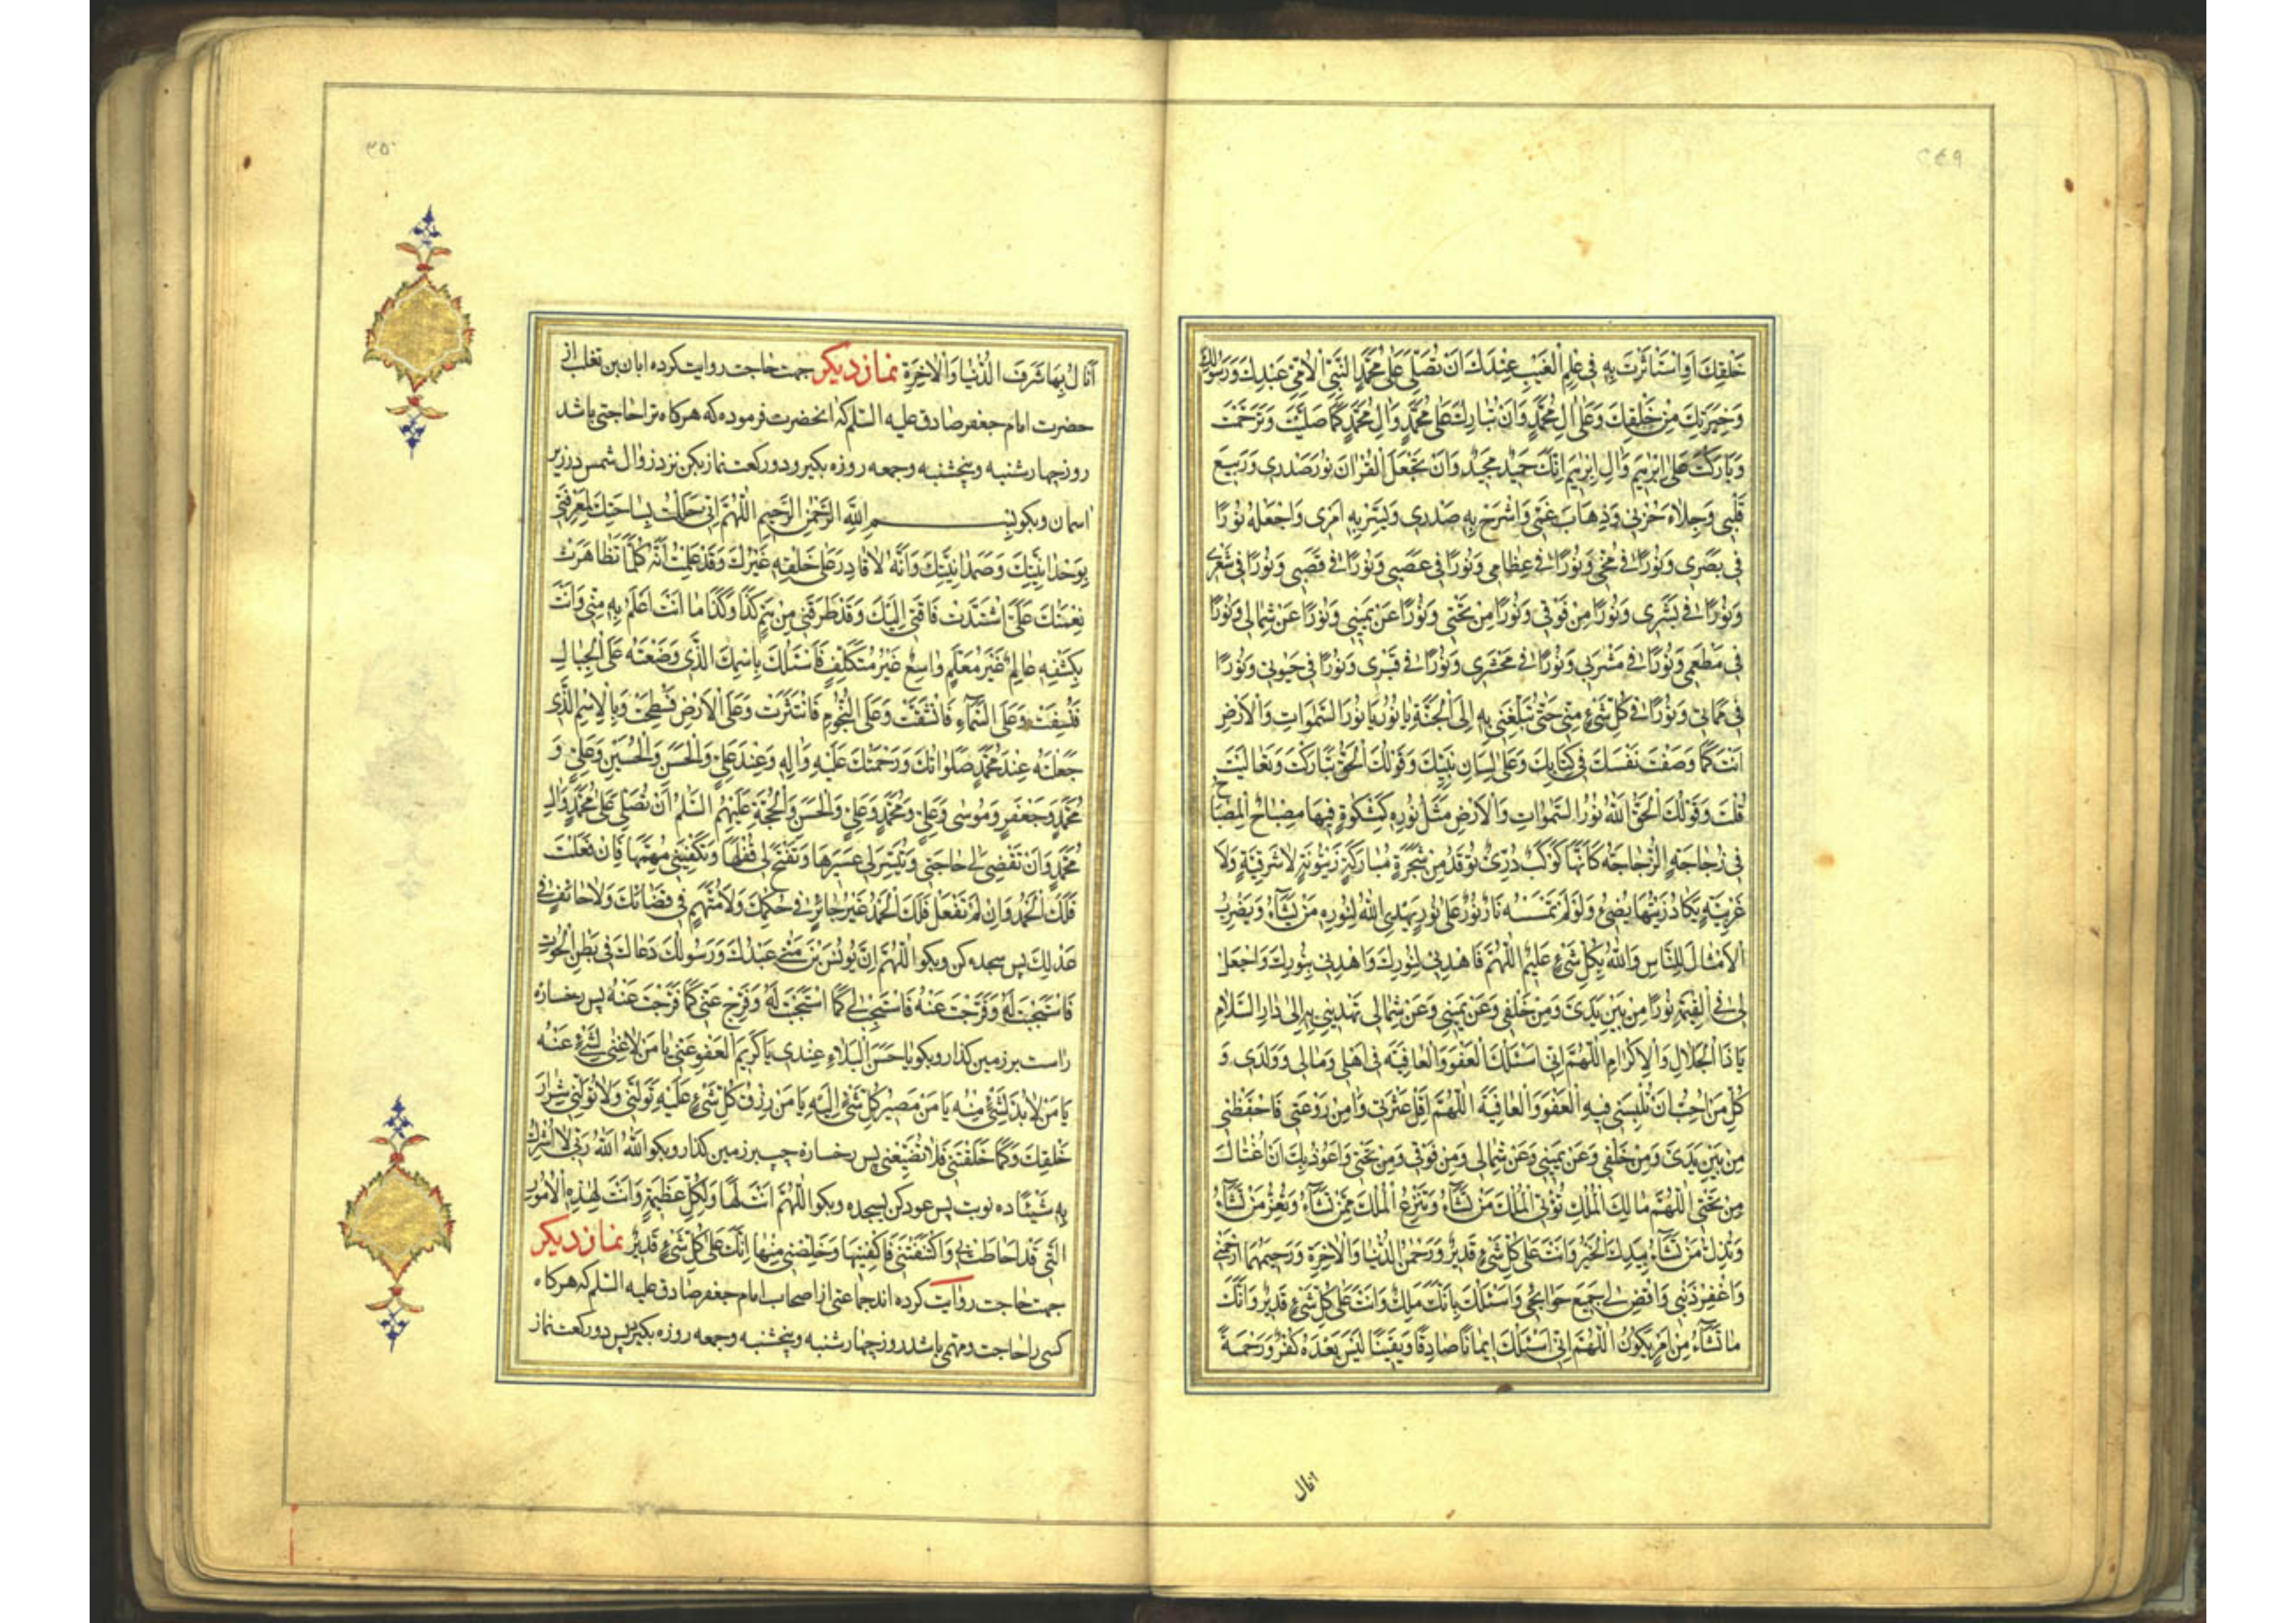 ٢٤٩
خَلْقِكَ اَوِ اسْتَأْثَرْتَ بِهِ فِي عِلْمِ الْغَيْبِ عِنْدَكَ اَنْ تُصَلِّيَ عَلٰى مُحَمَّدٍ النَّبِيِّ الْاُمِّيِّ عَبْدِكَ وَرَسُولِكَ
وَخِيَرَتِكَ مِنْ خَلْقِكَ وَعَلٰى اٰلِ مُحَمَّدٍ وَاَنْ تُبَارِكَ عَلٰى مُحَمَّدٍ وَاٰلِ مُحَمَّدٍ كَمَا صَلَّيْتَ وَتَرَحَّمْتَ
وَبَارَكْتَ عَلٰى اِبْرٰهِيمَ وَاٰلِ اِبْرٰهِيمَ اِنَّكَ حَمِيدٌ مَجِيدٌ وَاَنْ تَجْعَلَ الْقُرْاٰنَ نُورَ صَدْرِي وَرَبِيعَ
قَلْبِي وَجِلَاءَ حُزْنِي وَذِهَابَ غَمِّي وَاشْرَحْ بِهِ صَدْرِي وَيَسِّرْ بِهِ اَمْرِي وَاجْعَلْهُ نُورًا
فِي بَصَرِي وَنُورًا فِي مُخِّي وَنُورًا فِي عِظَامِي وَنُورًا فِي عَصَبِي وَنُورًا فِي قَصَبِي وَنُورًا فِي شَعْرِي
وَنُورًا فِي بَشَرِي وَنُورًا مِنْ فَوْقِي وَنُورًا مِنْ تَحْتِي وَنُورًا عَنْ يَمِينِي وَنُورًا عَنْ شِمَالِي وَنُورًا
فِي مَطْعَمِي وَنُورًا فِي مَشْرَبِي وَنُورًا فِي مَحْشَرِي وَنُورًا فِي قَبْرِي وَنُورًا فِي حَيٰوتِي وَنُورًا
فِي مَمَاتِي وَنُورًا فِي كُلِّ شَيْءٍ مِنِّي حَتّٰى تُبَلِّغَنِي بِهِ اِلَى الْجَنَّةِ يَا نُورُ يَا نُورَ السَّمٰوَاتِ وَالْاَرْضِ
اَنْتَ كَمَا وَصَفْتَ نَفْسَكَ فِي كِتَابِكَ وَعَلٰى لِسَانِ نَبِيِّكَ وَقَوْلُكَ الْحَقُّ تَبَارَكْتَ وَتَعَالَيْتَ
قُلْتَ وَقَوْلُكَ الْحَقُّ اَللّٰهُ نُورُ السَّمٰوَاتِ وَالْاَرْضِ مَثَلُ نُورِهِ كَمِشْكٰوةٍ فِيهَا مِصْبَاحٌ الْمِصْبَاحُ
فِي زُجَاجَةٍ الزُّجَاجَةُ كَاَنَّهَا كَوْكَبٌ دُرِّيٌّ يُوقَدُ مِنْ شَجَرَةٍ مُبَارَكَةٍ زَيْتُونَةٍ لَا شَرْقِيَّةٍ وَلَا
غَرْبِيَّةٍ يَكَادُ زَيْتُهَا يُضِيءُ وَلَوْ لَمْ تَمْسَسْهُ نَارٌ نُورٌ عَلٰى نُورٍ يَهْدِي اللّٰهُ لِنُورِهِ مَنْ يَشَاءُ وَيَضْرِبُ
الْاَمْثَالَ لِلنَّاسِ وَاللّٰهُ بِكُلِّ شَيْءٍ عَلِيمٌ اَللّٰهُمَّ فَاهْدِنِي لِنُورِكَ وَاهْدِنِي بِنُورِكَ وَاجْعَلْ
لِي فِي الْقِيٰمَةِ نُورًا مِنْ بَيْنِ يَدَيَّ وَمِنْ خَلْفِي وَعَنْ يَمِينِي وَعَنْ شِمَالِي تَهْدِينِي بِهِ اِلٰى دَارِ السَّلَامِ
يَا ذَا الْجَلَالِ وَالْاِكْرَامِ اَللّٰهُمَّ اِنِّي اَسْئَلُكَ الْعَفْوَ وَالْعَافِيَةَ فِي اَهْلِي وَمَالِي وَوَلَدِي وَ
كُلِّ مَنْ اُحِبُّ اَنْ تُلْبِسَنِي فِيهِ الْعَفْوَ وَالْعَافِيَةَ اَللّٰهُمَّ اَقِلْ عَثْرَتِي وَاٰمِنْ رَوْعَتِي فَاحْفَظْنِي
مِنْ بَيْنِ يَدَيَّ وَمِنْ خَلْفِي وَعَنْ يَمِينِي وَعَنْ شِمَالِي وَمِنْ فَوْقِي وَمِنْ تَحْتِي وَاَعُوذُ بِكَ اَنْ اُغْتَالَ
مِنْ تَحْتِي اَللّٰهُمَّ مَالِكَ الْمُلْكِ تُؤْتِي الْمُلْكَ مَنْ تَشَاءُ وَتَنْزِعُ الْمُلْكَ مِمَّنْ تَشَاءُ وَتُعِزُّ مَنْ تَشَاءُ
وَتُذِلُّ مَنْ تَشَاءُ بِيَدِكَ الْخَيْرُ وَاَنْتَ عَلٰى كُلِّ شَيْءٍ قَدِيرٌ وَرَحْمٰنَ الدُّنْيَا وَالْاٰخِرَةِ وَرَحِيمَهُمَا ارْحَمْنِي
وَاغْفِرْ ذَنْبِي وَاقْضِ لِي جَمِيعَ حَوَائِجِي وَاَسْئَلُكَ بِاَنَّكَ مَلِكٌ وَاَنْتَ عَلٰى كُلِّ شَيْءٍ قَدِيرٌ وَاَنَّكَ
مَا تَشَاءُ مِنْ اَمْرٍ يَكُونُ اَللّٰهُمَّ اِنِّي اَسْئَلُكَ اِيمَانًا صَادِقًا وَيَقِينًا لَيْسَ بَعْدَهُ كُفْرٌ وَرَحْمَةً
انال
٢٥٠
اَنَالُ بِهَا شَرَفَ الدُّنْيَا وَالْاٰخِرَةِ نماز ديكر جهت حاجت روايت كرده ابان بن تغلب از
حضرت امام جعفر صادق عليه السلم كه انحضرت فرموده كه هركاه ترا حاجتى باشد
روز چهارشنبه و پنجشنبه و جمعه روزه بكير و دو ركعت نماز بكن نزد زوال شمس در زير
اسمان و بكو بِسْمِ اللّٰهِ الرَّحْمٰنِ الرَّحِيمِ اَللّٰهُمَّ اِنِّي حَلَلْتُ بِسَاحَتِكَ لِمَعْرِفَتِي
بِوَحْدَانِيَّتِكَ وَصَمَدَانِيَّتِكَ وَاَنَّهُ لَا قَادِرَ عَلٰى خَلْقِهِ غَيْرُكَ وَقَدْ عَلِمْتُ اَنَّهُ كُلَّمَا تَظَاهَرَتْ
نِعْمَتُكَ عَلَيَّ اشْتَدَّتْ فَاقَتِي اِلَيْكَ وَقَدْ طَرَقَنِي مِنْ هَمِّ كَذَا وَكَذَا مَا اَنْتَ اَعْلَمُ بِهِ مِنِّي وَاَنْتَ
بِكَشْفِهِ عَالِمٌ غَيْرُ مُعَلَّمٍ وَاسِعٌ غَيْرُ مُتَكَلِّفٍ فَاَسْئَلُكَ بِاسْمِكَ الَّذِي وَضَعْتَهُ عَلَى الْجِبَالِ
فَنُسِفَتْ وَعَلَى السَّمَاءِ فَانْشَقَّتْ وَعَلَى النُّجُومِ فَانْتَثَرَتْ وَعَلَى الْاَرْضِ فَسُطِحَتْ وَبِالْاِسْمِ الَّذِي
جَعَلْتَهُ عِنْدَ مُحَمَّدٍ صَلَوَاتُكَ وَرَحْمَتُكَ عَلَيْهِ وَاٰلِهِ وَعِنْدَ عَلِيٍّ وَالْحَسَنِ وَالْحُسَيْنِ وَعَلِيٍّ وَ
مُحَمَّدٍ وَجَعْفَرٍ وَمُوسٰى وَعَلِيٍّ وَمُحَمَّدٍ وَعَلِيٍّ وَالْحَسَنِ وَالْحُجَّةِ عَلَيْهِمُ السَّلٰمُ اَنْ تُصَلِّيَ عَلٰى مُحَمَّدٍ وَاٰلِ
مُحَمَّدٍ وَاَنْ تَقْضِيَ لِي حَاجَتِي وَتُيَسِّرَ لِي عَسِيرَهَا وَتَفْتَحَ لِي قُفْلَهَا وَتَكْفِيَنِي مُهِمَّهَا فَاِنْ فَعَلْتَ
فَلَكَ الْحَمْدُ وَاِنْ لَمْ تَفْعَلْ فَلَكَ الْحَمْدُ غَيْرَ جَائِرٍ فِي حُكْمِكَ وَلَا مُتَّهَمٍ فِي قَضَائِكَ وَلَا حَائِفٍ فِي
عَدْلِكَ پس سجده كن و بكو اَللّٰهُمَّ اِنَّ يُونُسَ بْنَ مَتّٰى عَبْدَكَ وَرَسُولَكَ دَعَاكَ فِي بَطْنِ الْحُوتِ
فَاسْتَجَبْتَ لَهُ وَفَرَّجْتَ عَنْهُ فَاسْتَجِبْ لِي كَمَا اسْتَجَبْتَ لَهُ وَفَرِّجْ عَنِّي كَمَا فَرَّجْتَ عَنْهُ پس رخساره
راست بر زمين كذار و بكو يَا حَسَنَ الْبَلَاءِ عِنْدِي يَا كَرِيمَ الْعَفْوِ عَنِّي يَا مَنْ لَا غِنٰى لِشَيْءٍ عَنْهُ
يَا مَنْ لَا بُدَّ لِشَيْءٍ مِنْهُ يَا مَنْ مَصِيرُ كُلِّ شَيْءٍ اِلَيْهِ يَا مَنْ رِزْقُ كُلِّ شَيْءٍ عَلَيْهِ تَوَلَّنِي وَلَا تُوَلِّنِي شِرَارَ
خَلْقِكَ وَكَمَا خَلَقْتَنِي فَلَا تُضَيِّعْنِي پس رخساره چپ بر زمين كذار و بكو اَللّٰهُ اَللّٰهُ رَبِّي لَا اُشْرِكُ
بِهِ شَيْئًا ده نوبت پس عود كن بسجده و بكو اَللّٰهُمَّ اَنْتَ لَهَا وَلِكُلِّ عَظِيمَةٍ وَاَنْتَ لِهٰذِهِ الْاُمُورِ
الَّتِي قَدْ اَحَاطَتْ بِي وَاكْتَنَفَتْنِي فَاكْفِنِيهَا وَخَلِّصْنِي مِنْهَا اِنَّكَ عَلٰى كُلِّ شَيْءٍ قَدِيرٌ نماز ديكر
جهت حاجت روايت كرده اند جماعتى از اصحاب امام جعفر صادق عليه السلم كه هركاه
كسى را حاجت و مهمى باشد روز چهارشنبه و پنجشنبه و جمعه روزه بكيرد پس دو ركعت نماز